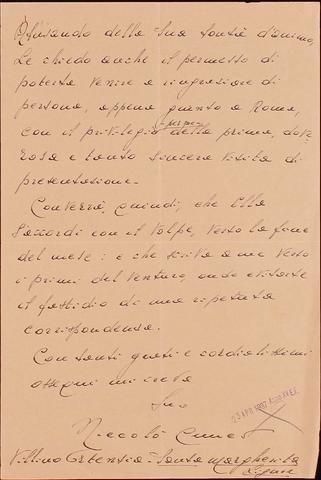 Abusando della Sua bontà d'animo,
Le chiedo anche il permesso di
poterla venire a ringraziare di
persona, appena giunto a Roma,
con il privilegio della prima, dove-
rosa e tanto sincera visita di
presentazione.
Converrà, quindi, che Ella
s'accordi con il Volpe, verso la fine
del mese: e che scriva a me verso
i primi del venturo, onde evitarle
il fastidio di una ripetuta
corrispondenza.
Con tanti grati e cordialissimi
ossequi mi creda
Suo
Niccolò Cuneo
Villino Ortensia - Santa Margherita
Ligure
23 APR 1937 Anno XV E.F.